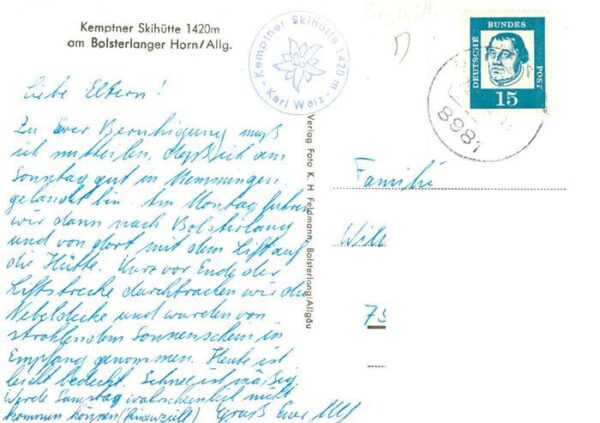 Kemptner Skihütte 1420m
am Bolsterlanger Horn/Allg.
Kemptner Skihütte 1420 m
- Karl Walz -
DEUTSCHE BUNDES POST
15
8981
Liebe Eltern!
Zu Eurer Beruhigung muß
ich mitteilen, daß ich am
Sonntag gut in Memmingen
gelandet bin. Am Montag fuhren
wir dann nach Bolsterlang
und von dort mit dem Lift auf
die Hütte. Kurz vor Ende der
Liftstrecke durchbrachen wir die
Nebeldecke und wurden von
strahlendem Sonnenschein in
Empfang genommen. Heute ist
leicht bedeckt. Schnee ist mäßig.
Werde Samstag wahrscheinlich nicht
kommen können (finanziell) Gruß Euer
Verlag Foto K. H. Feldmann, Bolsterlang/Allgäu
Familie
Wilh
75